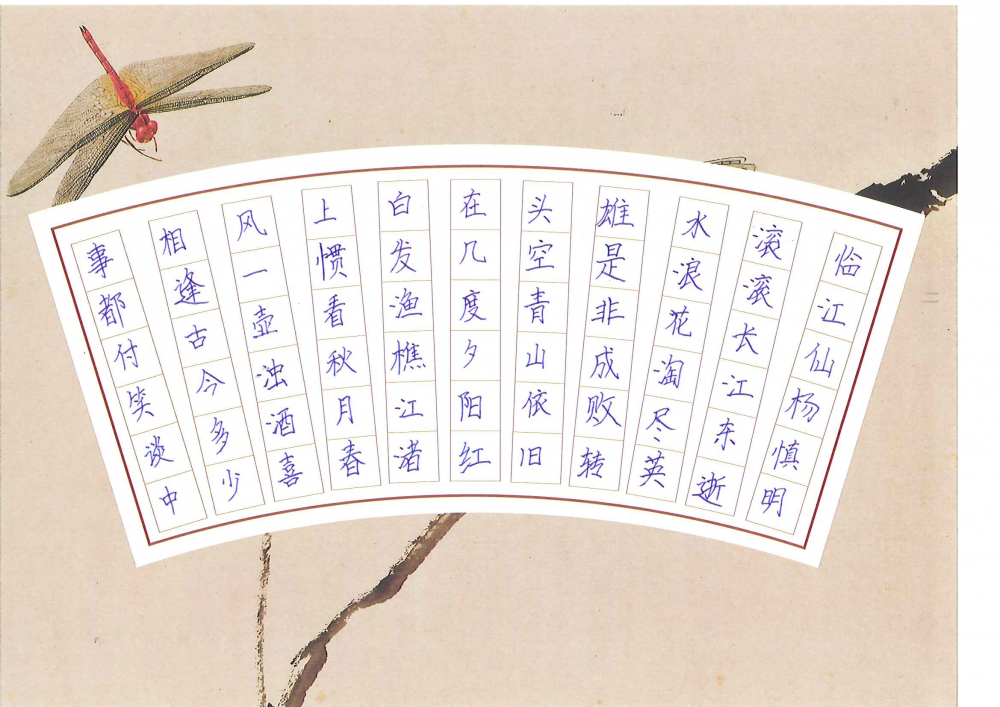 临江仙杨慎明
滚滚长江东逝
水浪花淘尽英
雄是非成败转
头空青山依旧
在几度夕阳红
白发渔樵江渚
上惯看秋月春
风一壶浊酒喜
相逢古今多少
事都付笑谈中